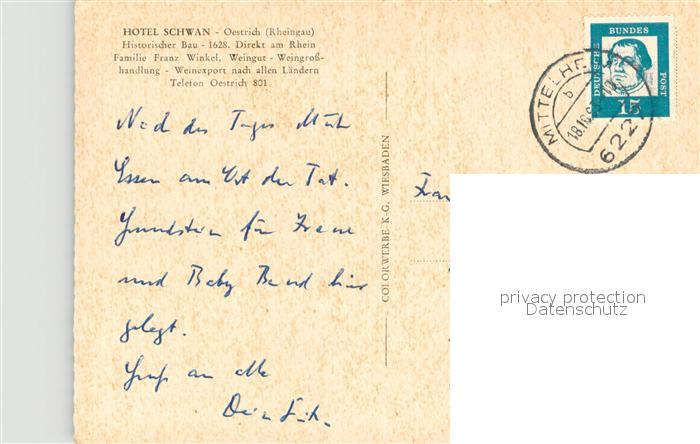 HOTEL SCHWAN - Oestrich (Rheingau)
Historischer Bau - 1628. Direkt am Rhein
Familie Franz Winkel, Weingut - Weingroß-
handlung - Weinexport nach allen Ländern
Telefon Oestrich 801
DEUTSCHE BUNDES POST
15
MITTELHE
b
18.10.
622
Nach des Tages Müh
Essen am Ort der Tat.
Grundstein für
und Baby Bernd hier
gelegt.
Gruß an alle
Dein
COLORWERBE K-G. WIESBADEN
privacy protection
Datenschutz